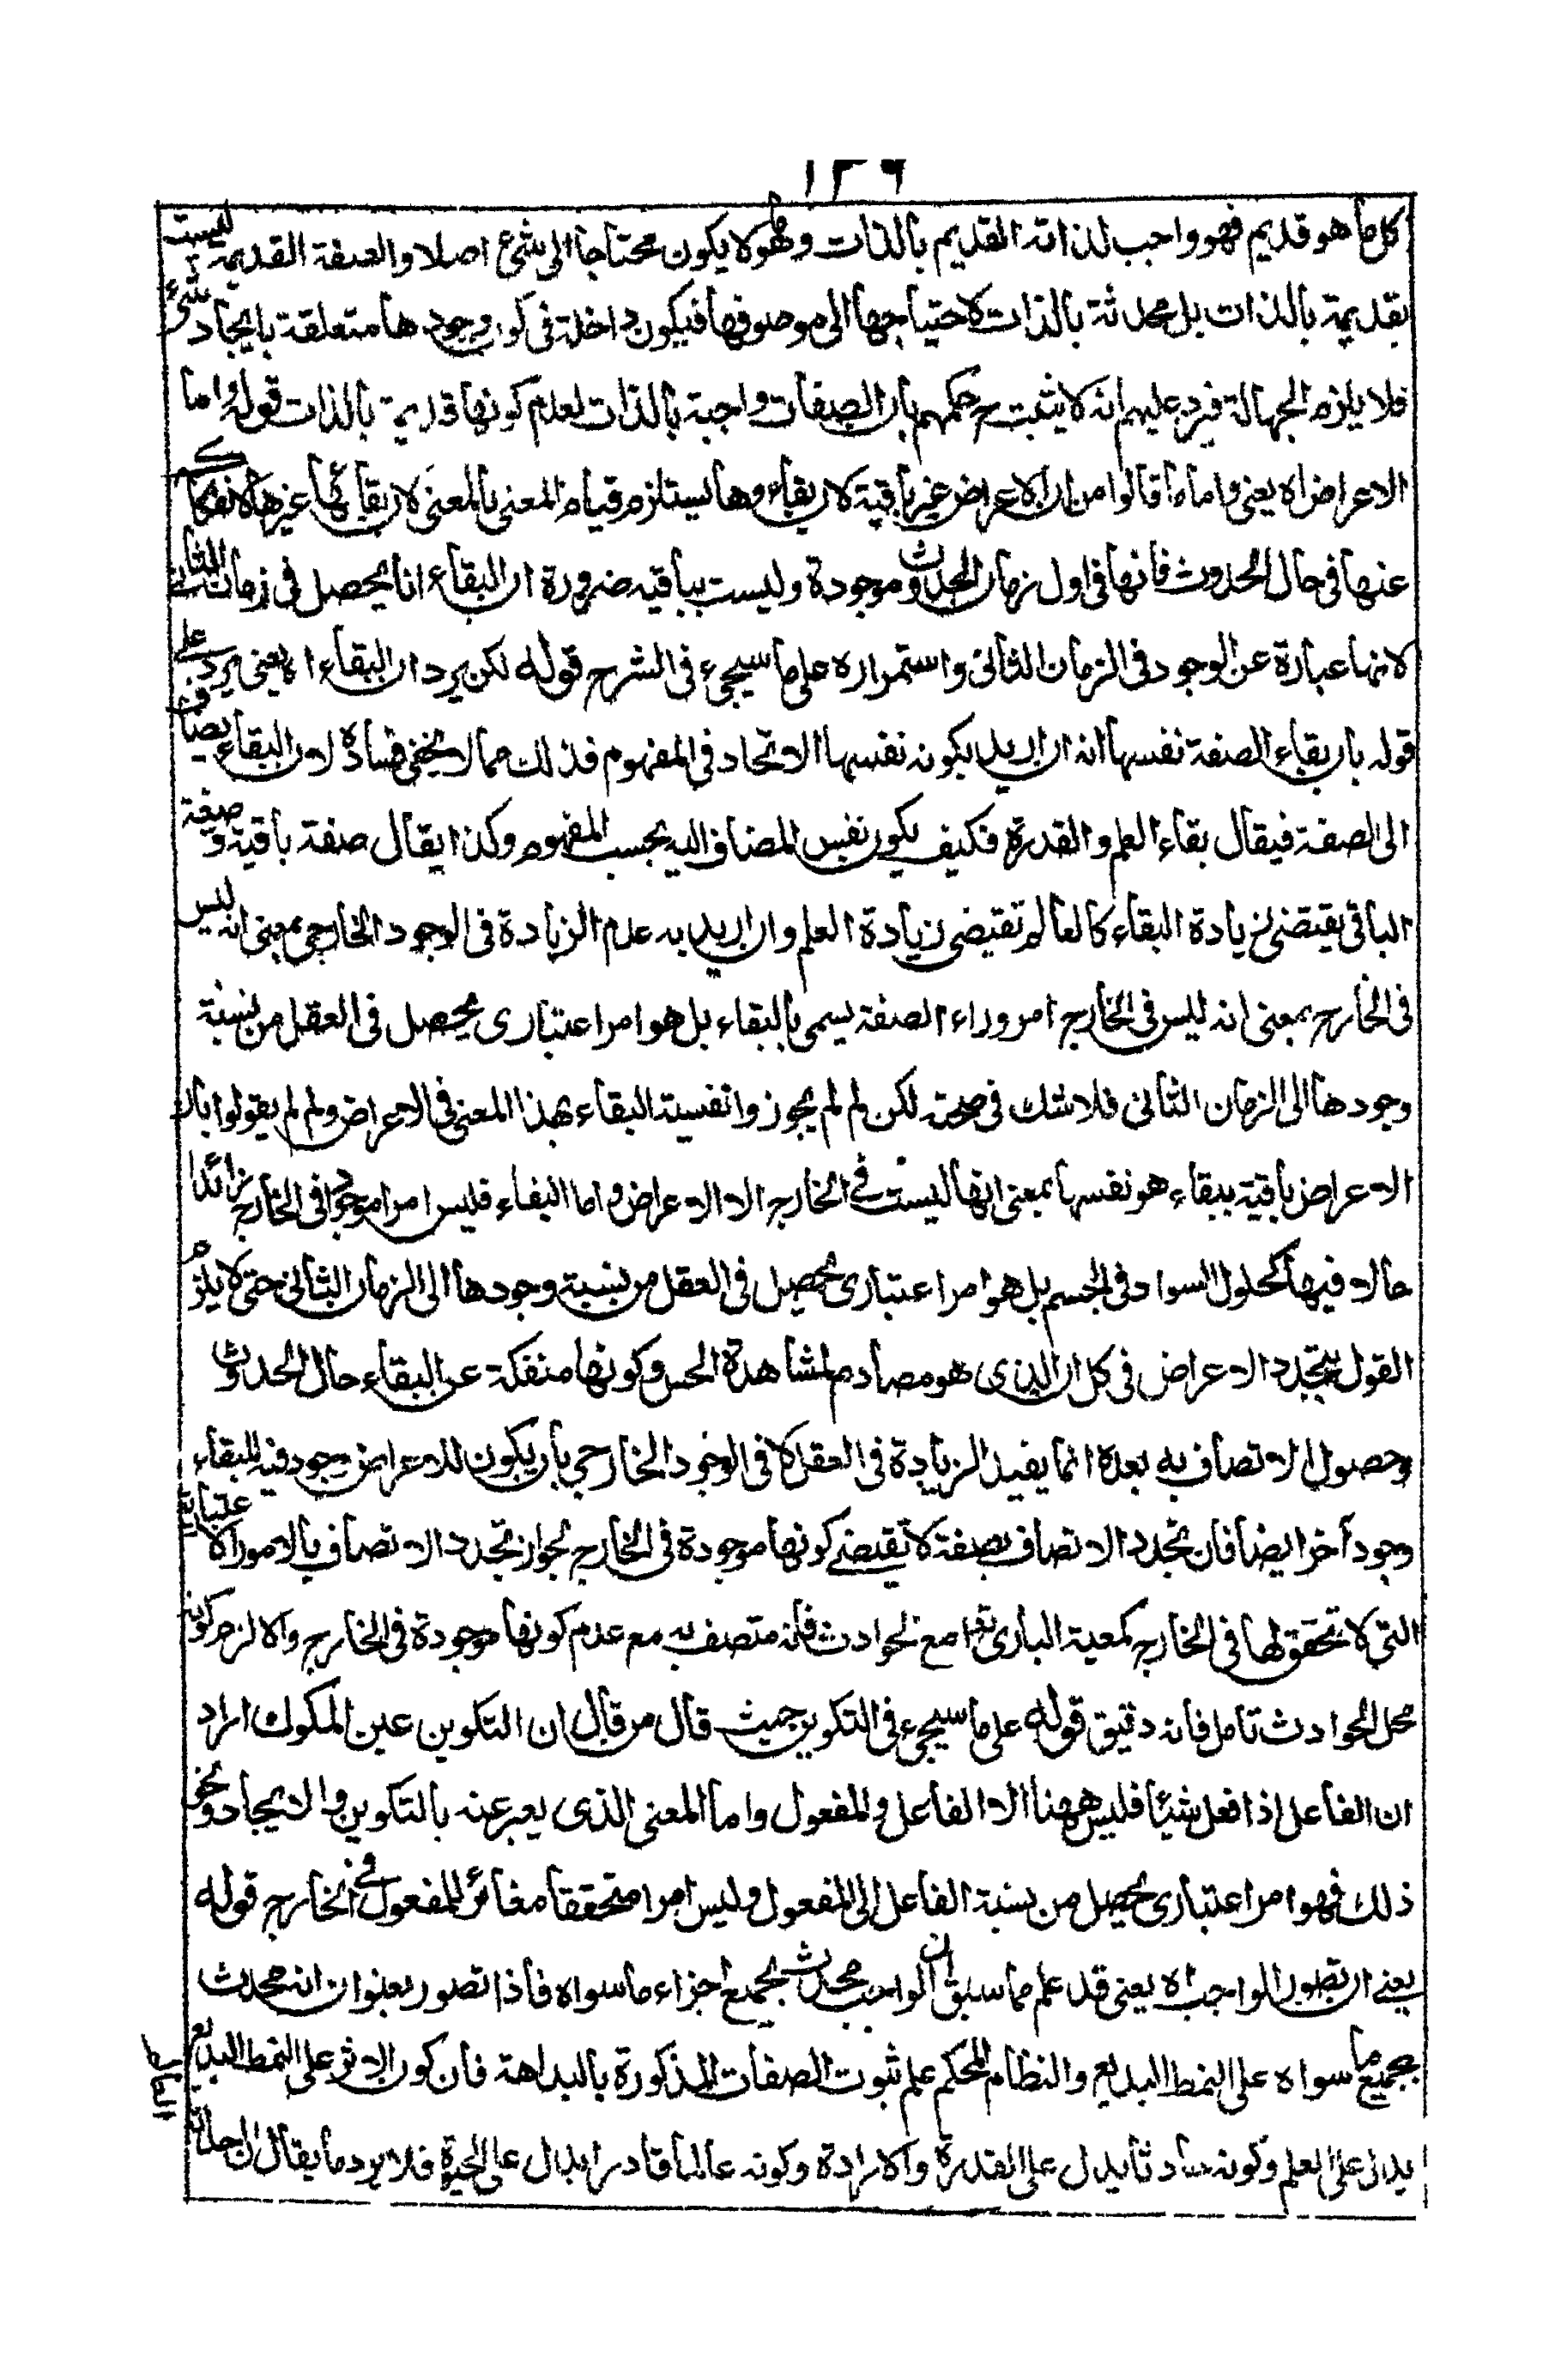 ١٣٦
كل ما هو قديم فهو واجب لذاته القديم بالذات وما هو لا يكون محتاجا الى شئ اصلا والصفة القديمة ليست
بقديمة بالذات بل محدثة بالذات لاحتياجها الى موصوفها فيكون داخلة فى كون وجودها متعلقة بايجاد شئ
فلا يلزم الجهالة فيرد عليهم انه لا يثبت ح حكمهم بان الصفات واجبة بالذات لعدم كونها قديمة بالذات قوله واما
الاعراض اه يعنى واما ما قالوا من ان الاعراض غير باقية لان بقاءها يستلزم قيام المعنى بالمعنى لان بقائها غيرها لانفكاكـ
عنها فى حال الحدوث فانها فى اول زمان الحدوث موجودة وليست بباقيه ضرورة ان البقاء انا يحصل فى زمان الثانى
لانها عبارة عن الوجود فى الزمان الثانى واستمراره على ما سيجىء فى الشرح قوله لكن يرد ان البقاء اه يعنى يرد على
قوله بان بقاء الصفة نفسها انه ان اريد بكونه نفسها الاتحاد فى المفهوم فذلك مما لا يخفى فساده لان البقاء يضاف
الى الصفة فيقال بقاء العلم والقدرة فكيف يكون نفس المضاف اليه بحسب المفهوم وكذا يقال صفة باقية وصيغة
الباقى يقتضى زيادة البقاء كالعالم تقتضى زيادة العلم وان اريد به عدم الزيادة فى الوجود الخارجى بمعنى انه ليس
فى الخارج بمعنى انه ليس فى الخارج امر وراء الصفة يسمى بالبقاء بل هو امر اعتبارى يحصل فى العقل من نسبة
وجودها الى الزمان الثانى فلا شك فى صحته لكن لم لم يجوزوا نفسية البقاء بهذا المعنى فى الاعراض ولم لم يقولوا بان
الاعراض باقية ببقاء هو نفسها بمعنى انها ليست فى الخارج الا الاعراض واما البقاء فليس امرا موجودا فى الخارج زائدا
حالا فيها كحلول السواد فى الجسم بل هو امر اعتبارى يحصل فى العقل من نسبة وجودها الى الزمان الثانى حتى لا يلزم
القول بتجدد الاعراض فى كل ان الذى هو مصادم لمشاهدة الحس وكونها منفكة عن البقاء حال الحدوث
وحصول الاتصاف به بعده انما يفيد الزيادة فى العقل لا فى الوجود الخارجى بان يكون للاعراض وجود فيه للبقاء
وجود آخر ايضا فان تجدد الاتصاف بصفة لا تقتضى كونها موجودة فى الخارج لجواز تجدد الاتصاف بالامور الاعتبارية
التى لا تحقق لها فى الخارج كمعية البارى تعا مع الحوادث فانه متصف به مع عدم كونها موجودة فى الخارج والا لزم كونه
محل الحوادث تامل فانه دقيق قوله على ما سيجىء فى التكوين حيث قال من قال ان التكوين عين المكون اراد
ان الفاعل اذا فعل شيئا فليس ههنا الا الفاعل والمفعول واما المعنى الذى يعبر عنه بالتكوين والايجاد ونحو
ذلك فهو امر اعتبارى يحصل من نسبة الفاعل الى المفعول وليس امرا متحققا مغائرا للمفعول فى الخارج قوله
يعنى ان تصور الواجب اه يعنى قد علم مما سبق ان الواجب محدث لجميع اجزاء ما سواه فاذا تصور بعنوان انه محدث
بجميع ما سواه على النمط البديع والنظام المحكم علم ثبوت الصفات المذكورة بالبداهة فان كون الاثر على النمط البديع
يدل على العلم وكونه حادثا يدل على القدرة والارادة وكونه عالما قادرا يدل على الحيوة فلا يرد ما يقال ان